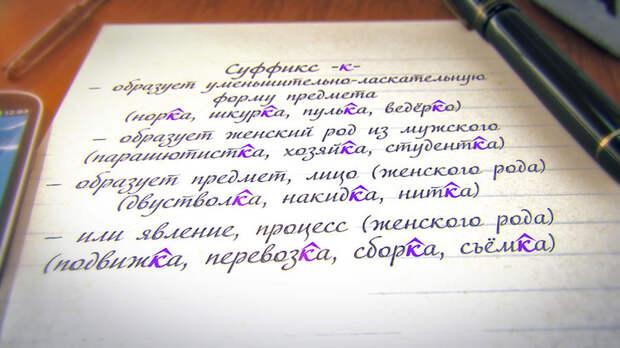 Суффикс -к-
— образует уменьшительно-ласкательную
форму предмета
(норка, шкурка, пулька, ведёрко)
— образует женский род из мужского
(парашютистка, хозяйка, студентка)
— образует предмет, лицо (женского рода)
(двустволка, накидка, нитка)
— или явление, процесс (женского рода)
(подвижка, перевозка, сборка, съёмка)